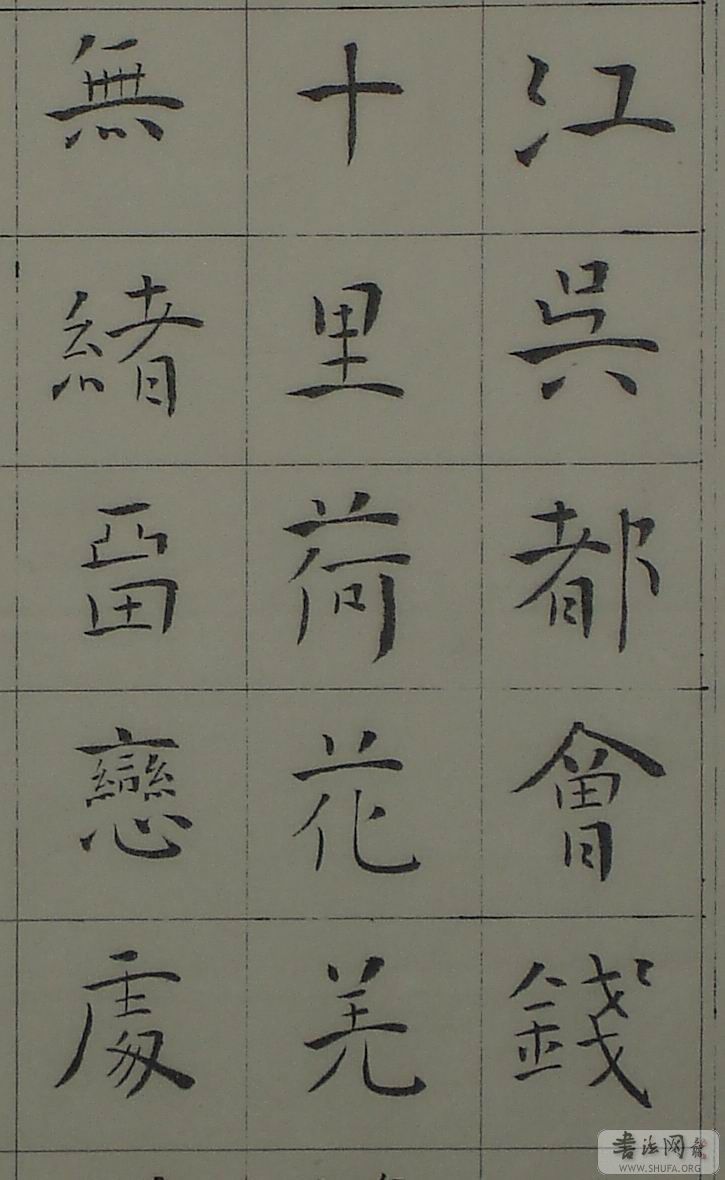 江吳都會錢
十里荷花羌
無緒留戀處
书法网
WWW.SHUFA.ORG